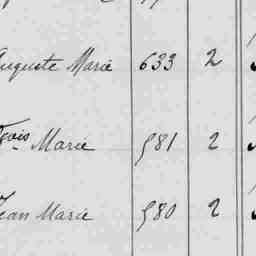 Auguste Marie 633 2
Fçois Marie 581 2
Jean Marie 580 2